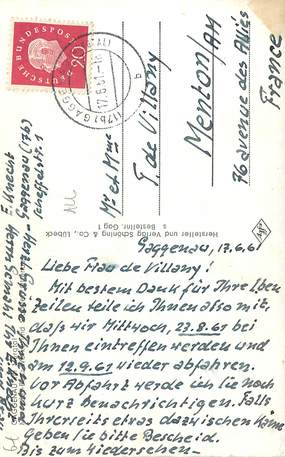 Gaggenau, 17.6.61
Liebe Frau de Villany!
Mit bestem Dank für Ihre lben
zeilen teile ich Ihnen also mit,
daß wir Mittwoch, 23.8.61 bei
Ihnen eintreffen werden und
am 12.9.61 wieder abfahren.
Vor Abfahrt werde ich Sie noch
kurz benachrichtigen. Falls
Ihrerseits etwas dazwischen käme
geben Sie bitte Bescheid.
Bis zum Wiedersehen-
E. Knecht
Gaggenau (17b)
Scheffelstr. 1
Hersteller und Verlag Schöning & Co., Lübeck
s Bestellnr. Gag 1
Mr et Mme
T. de Villany
Menton/AM
76 avenue des Alliés
France
DEUTSCHE BUNDESPOST
20
(17b) GAGGENAU
17.6.61
b